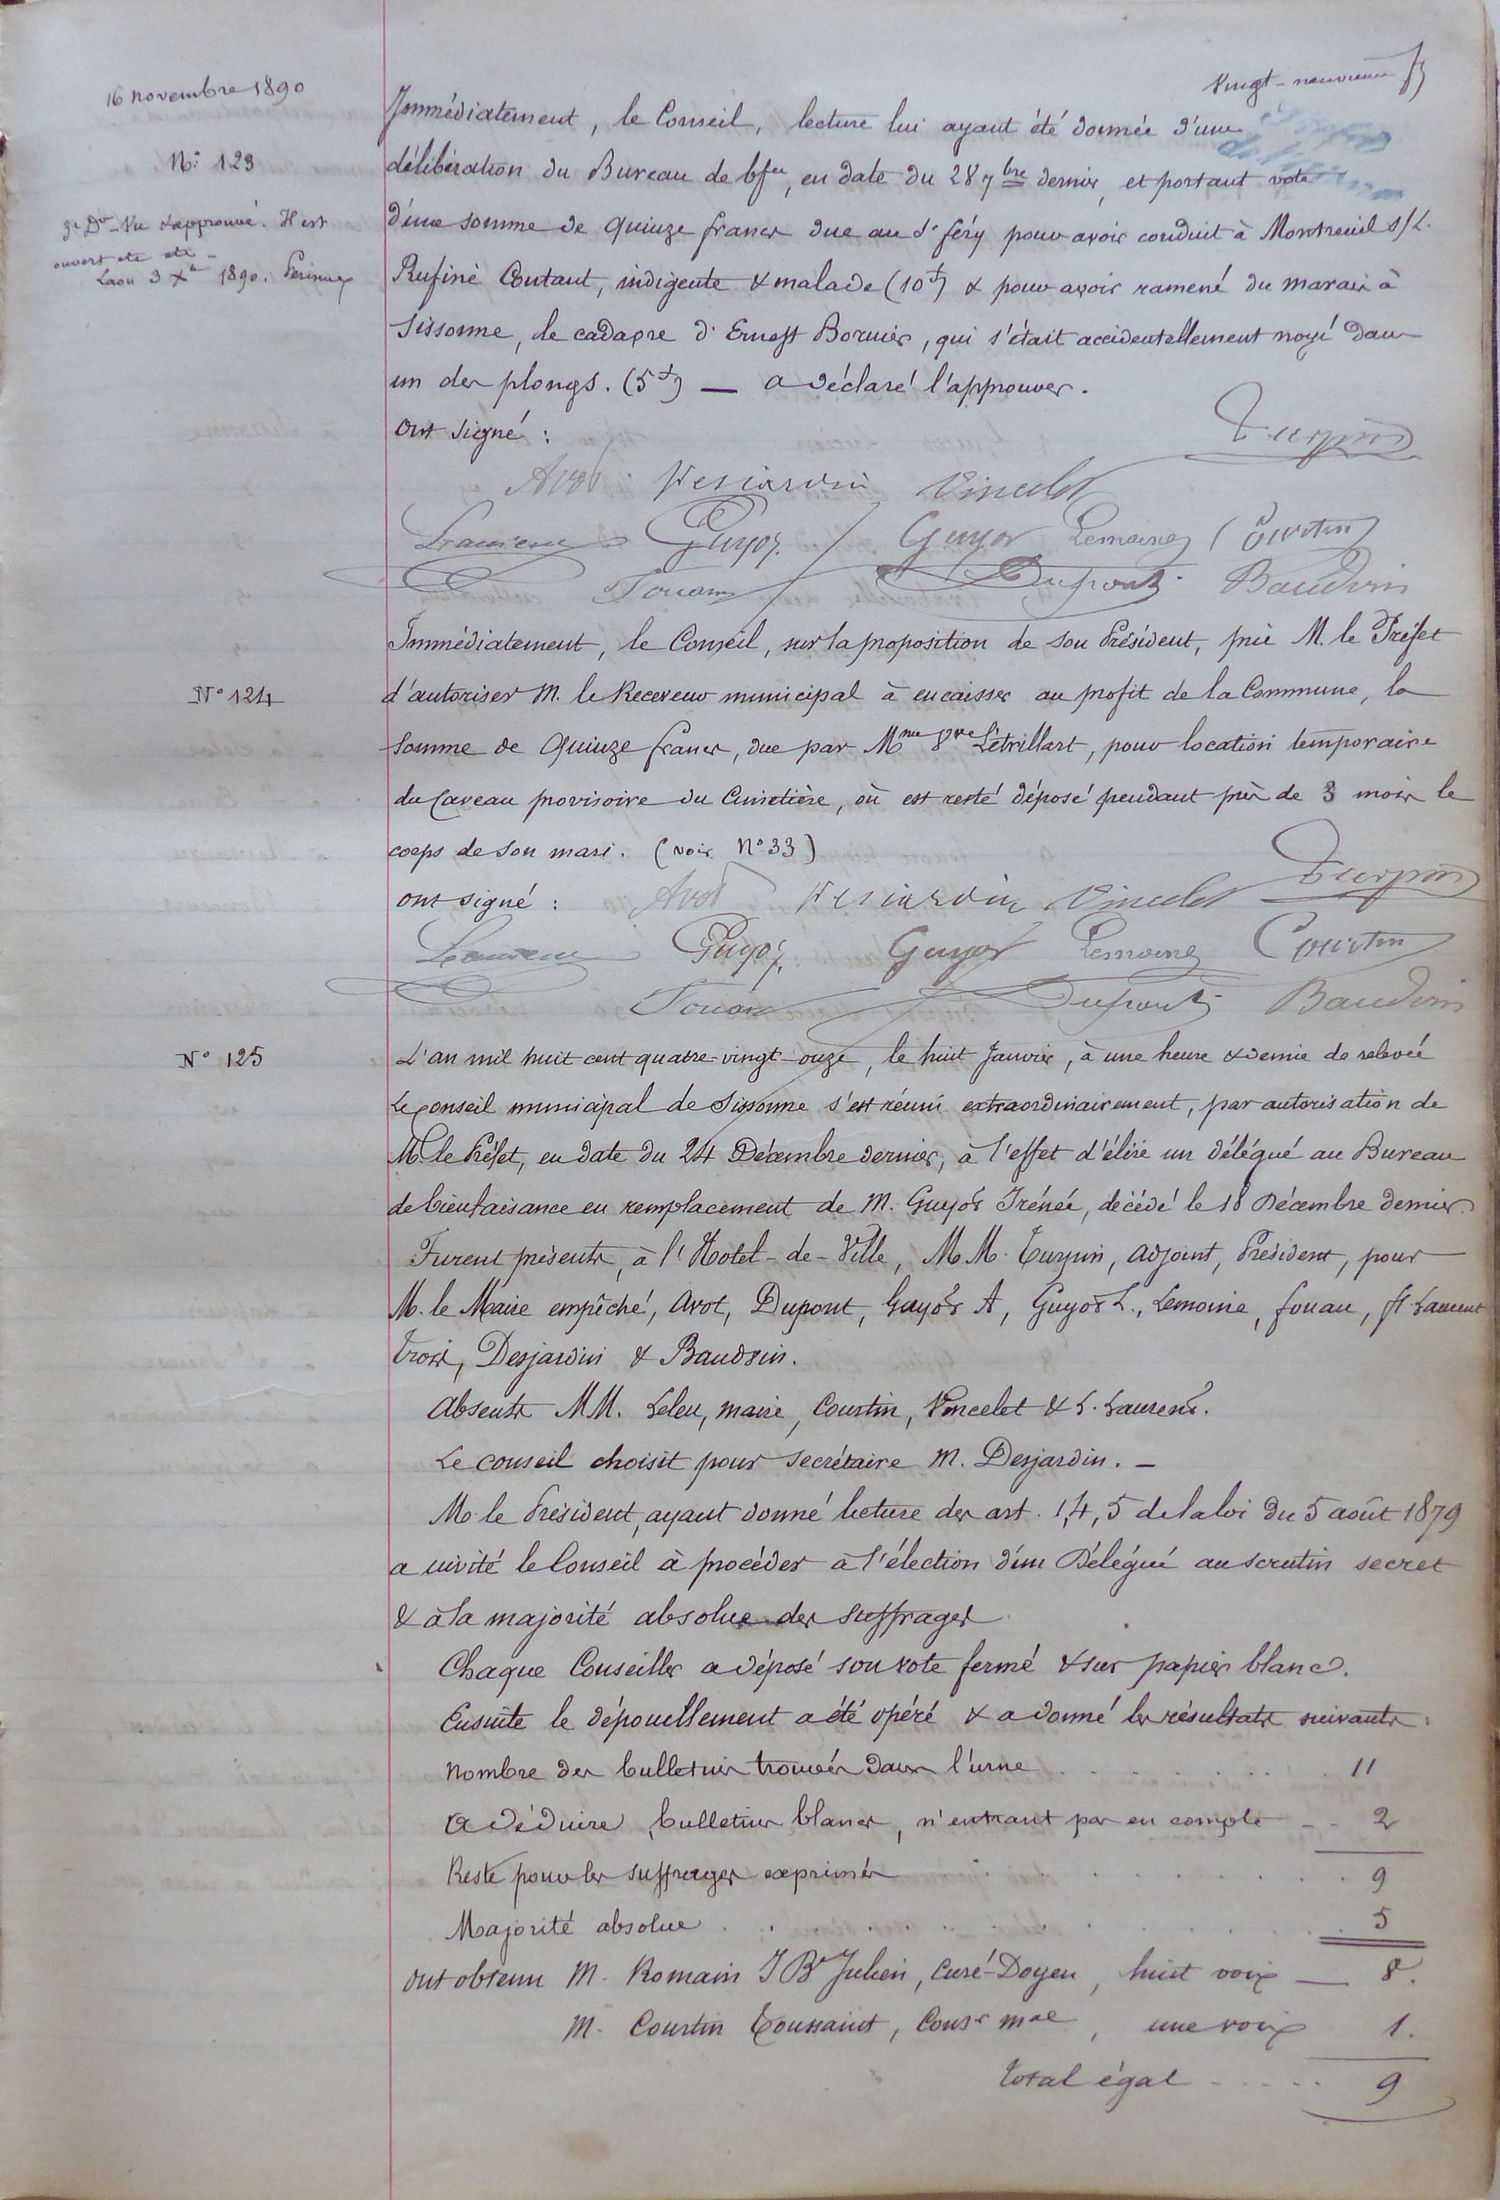 16 novembre 1890
Vingt-neuvième f
N° 123
3e Don - Vu & approuvé. Il est
ouvert etc etc -
Laon 3 Xbre 1890.
Immédiatement, le Conseil, lecture lui ayant été donnée d'une
délibération du Bureau de bfce, en date du 28 7bre dernier, et portant vote
d'une somme de quinze francs due au sr féry pour avoir conduit à Montreuil s/L.
Rufine Contant, indigente & malade (10f) & pour avoir ramené du marais à
Sissonne, le cadavre d'Ernest Bornier, qui s'était accidentellement noyé dans
un des plongs. (5f) — a déclaré l'approuver.
Ont signé :
Turpin
Avot Desjardin Vincelet
Laurent Guyot Guyot Lemoine Courtin
Fouan Dupont Baudoin
Immédiatement, le Conseil, sur la proposition de son Président, prie M. le Préfet
N° 124
d'autoriser M. le Receveur municipal à encaisser au profit de la Commune, la
somme de quinze francs, due par Mme Vve Létrillart, pour location temporaire
du Caveau provisoire du Cimetière, où est resté déposé pendant près de 3 mois le
corps de son mari. (voir N° 33)
Ont signé : Avot Desjardin Vincelet Turpin
Laurent Guyot Guyot Lemoine Courtin
Fouan Dupont Baudoin
N° 125
L'an mil huit cent quatre-vingt-onze, le huit Janvier, à une heure & demie de relevée
Le Conseil municipal de Sissonne s'est réuni extraordinairement, par autorisation de
M. le Préfet, en date du 24 Décembre dernier, à l'effet d'élire un délégué au Bureau
de bienfaisance en remplacement de M. Guyot Irénée, décédé le 18 Décembre dernier.
Furent présents, à l'Hotel-de-Ville, MM. Turpin, adjoint, Président, pour
M. le Maire empêché, Avot, Dupont, Guyot A, Guyot L., Lemoine, fouan, ft Laurent
Trois, Desjardin & Baudoin.
Absents MM. Leleu, maire, Courtin, Vincelet & L. Laurent.
Le conseil choisit pour secrétaire M. Desjardin. —
M. le Président, ayant donné lecture des art. 1, 4, 5 de la loi du 5 août 1879
a invité le Conseil à procéder à l'élection d'un Délégué au scrutin secret
& à la majorité absolue des suffrages
Chaque Conseiller a déposé son vote fermé & sur papier blanc.
Ensuite le dépouillement a été opéré & a donné les résultats suivants :
Nombre des bulletins trouvés dans l'urne . . . . . . . 11
A déduire, bulletins blancs, n'entrant pas en compte - . 2
Reste pour les suffrages exprimés . . . . . . . . 9
Majorité absolue . . . . . . . . . . . 5
Ont obtenu M. Romain J Bte Julien, Curé-Doyen, huit voix — 8.
M. Courtin Toussaint, Consr mal, une voix 1.
Total égal . . . . . 9